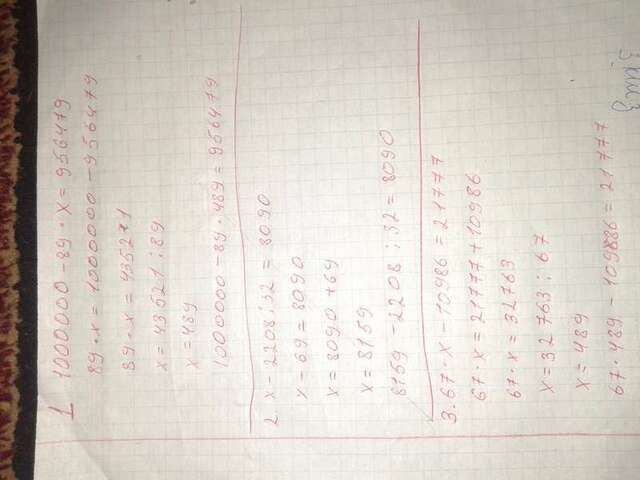 1 1000000 - 89 · x = 956479
89 · x = 1000000 - 956479
89 · x = 43521
x = 43521 : 89
x = 489
1000000 - 89 · 489 = 956479
2. x - 2208 : 32 = 8090
x - 69 = 8090
x = 8090 + 69
x = 8159
8159 - 2208 : 32 = 8090
3. 67 · x - 10986 = 21777
67 · x = 21777 + 10986
67 · x = 32763
x = 32763 : 67
x = 489
67 · 489 - 109886 = 21777